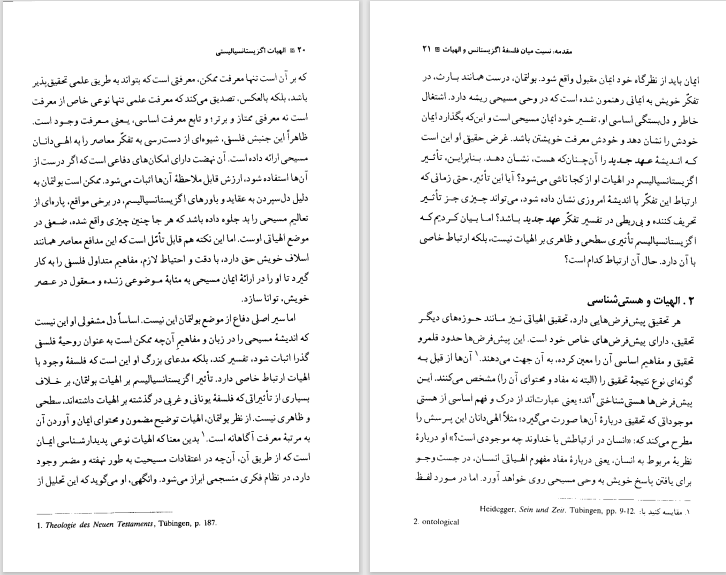 ۲۰ ▣ الهیات اگزیستانسیالیستی
که بر آن است تنها معرفت ممکن، معرفتی است که بتواند به طریق علمی تحقیق‌پذیر
باشد، بلکه بالعکس، تصدیق می‌کند که معرفت علمی تنها نوعی خاص از معرفت
است نه معرفتی ممتاز و برتر؛ و تابع معرفت اساسی، یعنی معرفت وجود است.
ظاهراً این جنبش فلسفی، شیوه‌ای از دست‌رسی به تفکّر معاصر را به الهی‌دانان
مسیحی ارائه داده است. آن نهضت دارای امکان‌های دفاعی است که اگر درست از
آن‌ها استفاده شود، ارزش قابل ملاحظهٔ آن‌ها اثبات می‌شود. ممکن است بولتمان به
دلیل دل‌سپردن به عقاید و باورهای اگزیستانسیالیسم، در برخی مواقع، پاره‌ای از
تعالیم مسیحی را بد جلوه داده باشد که هر جا چنین چیزی واقع شده، ضعفی در
موضع الهیاتی اوست. اما این نکته هم قابل تأمّل است که این مدافع معاصر همانند
اسلاف خویش حق دارد، با دقت و احتیاط لازم، مفاهیم متداول فلسفی را به کار
گیرد تا او را در ارائهٔ ایمان مسیحی به مثابهٔ موضوعی زنده و معقول در عصر
خویش، توانا سازد.
اما سیر اصلی دفاع از موضع بولتمان این نیست. اساساً دل مشغولی او این نیست
که اندیشهٔ مسیحی را در زبان و مفاهیم آن‌چه ممکن است به عنوان روحیهٔ فلسفی
گذرا اثبات شود، تفسیر کند، بلکه مدعای بزرگ او این است که فلسفهٔ وجود با
الهیات ارتباط خاصی دارد. تأثیر اگزیستانسیالیسم بر الهیات بولتمان، بر خلاف
بسیاری از تأثیراتی که فلسفهٔ یونانی و غربی در گذشته بر الهیات داشته‌اند، سطحی
و ظاهری نیست. از نظر بولتمان، الهیات توضیح مضمون و محتوای ایمان و آوردن آن
به مرتبهٔ معرفت آگاهانه است.۱ بدین معنا که الهیات نوعی پدیدارشناسی ایمان
است که از طریق آن، آن‌چه در اعتقادات مسیحیت به طور نهفته و مضمر وجود
دارد، در نظام فکری منسجمی ابراز می‌شود. وانگهی، او می‌گوید که این تحلیل از
1. Theologie des Neuen Testaments, Tübingen, p. 187.
مقدمه، نسبت میان فلسفهٔ اگزیستانس و الهیات ▣ ۲۱
ایمان باید از نظرگاه خود ایمان مقبول واقع شود. بولتمان، درست همانند بارت، در
تفکّر خویش به ایمانی رهنمون شده است که در وحی مسیحی ریشه دارد. اشتغال
خاطر و دل‌بستگی اساسی او، تفسیر خود ایمان مسیحی است و این‌که بگذارد ایمان
خودش را نشان دهد و خودش معرفت خویشتن باشد. غرض حقیق او این است
کـه اندیشهٔ عهد جدید را آن‌چنان‌که هست، نشـان دهـد. بنابراین، تأثیر
اگزیستانسیالیسم در الهیات او از کجا ناشی می‌شود؟ آیا این تأثیر، حتی زمانی که
ارتباط این تفکّر با اندیشهٔ امروزی نشان داده شود، می‌تواند چیزی جز تأثیر
تحریف کننده و بی‌ربطی در تفسیر تفکّر عهد جدید باشد؟ اما بیان کردیم که
اگزیستانسیالیسم تأثیری سطحی و ظاهری بر الهیات نیست، بلکه ارتباط خاصی
با آن دارد. حال آن ارتباط کدام است؟
۲ . الهیات و هستی‌شناسی
هر تحقیق پیش‌فرض‌هایی دارد، تحقیق الهیاتی نیز مانند حوزه‌های دیگر
تحقیق، دارای پیش‌فرض‌های خاص خود است. این پیش‌فرض‌ها حدود قلمرو
تحقیق و مفاهیم اساسی آن را معین کرده، به آن جهت می‌دهند.۱ آن‌ها از قبل به
گونه‌ای نوع نتیجهٔ تحقیق را (البته نه مفاد و محتوای آن را) مشخص می‌کنند. این
پیش‌فرض‌ها هستی‌شناختی۲اند؛ یعنی عبارت‌اند از درک و فهم اساسی از هستی
موجوداتی که تحقیق دربارهٔ آن‌ها صورت می‌گیرد؛ مثلاً الهی‌دانان این پرسش را
مطرح می‌کند که: «انسان در ارتباطش با خداوند چه موجودی است؟» او دربارهٔ
نظریهٔ مربوط به انسان، یعنی دربارهٔ مفاد مفهوم الهیاتی انسان، در جست وجـو
برای یافتن پاسخ خویش به وحی مسیحی روی خواهد آورد. اما در مورد لفظ
۱. مقایسه کنید با: Heidegger, Sein und Zeit, Tübingen, pp. 9-12.
2. ontological